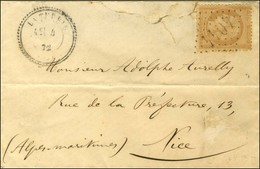 72
Monsieur Adolphe Auretty
Rue de la Préfecture, 13,
(Alpes-maritimes) Nice